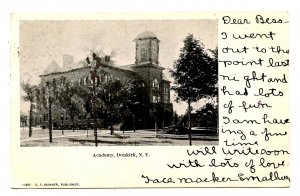 Dear Bess-
I went
out to the
point last
night and
had lots
of fun
I am hav
ing a fine
time
will write soon
with lots of love
Academy, Dunkirk, N. Y.